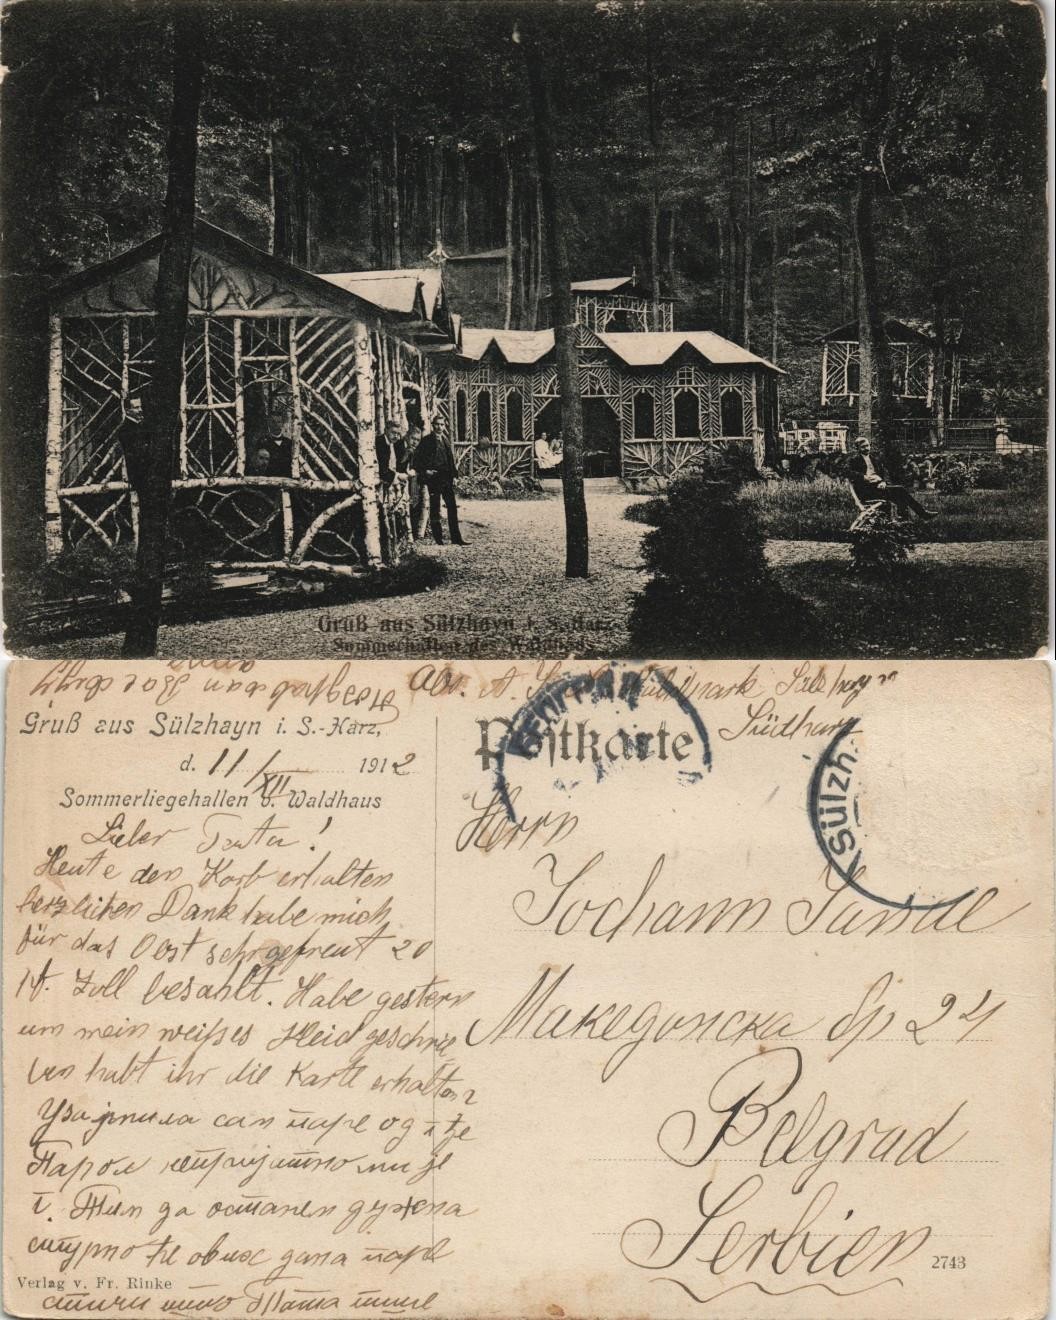 Gruß aus Sülzhayn i. S.-Harz
Sommerhallen des Waldhaus
Abs. A.
Südharz
Gruß aus Sülzhayn i. S.-Harz,
d. 11/XII 1912
Sommerliegehallen b. Waldhaus
Postkarte
Sülzh
Lieber Tata!
Heute den Korb erhalten
herzlichen Dank habe mich
für das Obst sehr gefreut 20
Zoll bezahlt. Habe gestern
um mein weißes Kleid geschrie
ben habt ihr die Karte erhalten?
Узајмила сам паре од
Парол непријатно ми је
да останем дужна
сигурно ће овизх дана паре
стичи
Herrn
Jochann
Македонска др 24
Belgrad
Serbien
Verlag v. Fr. Rinke
2743